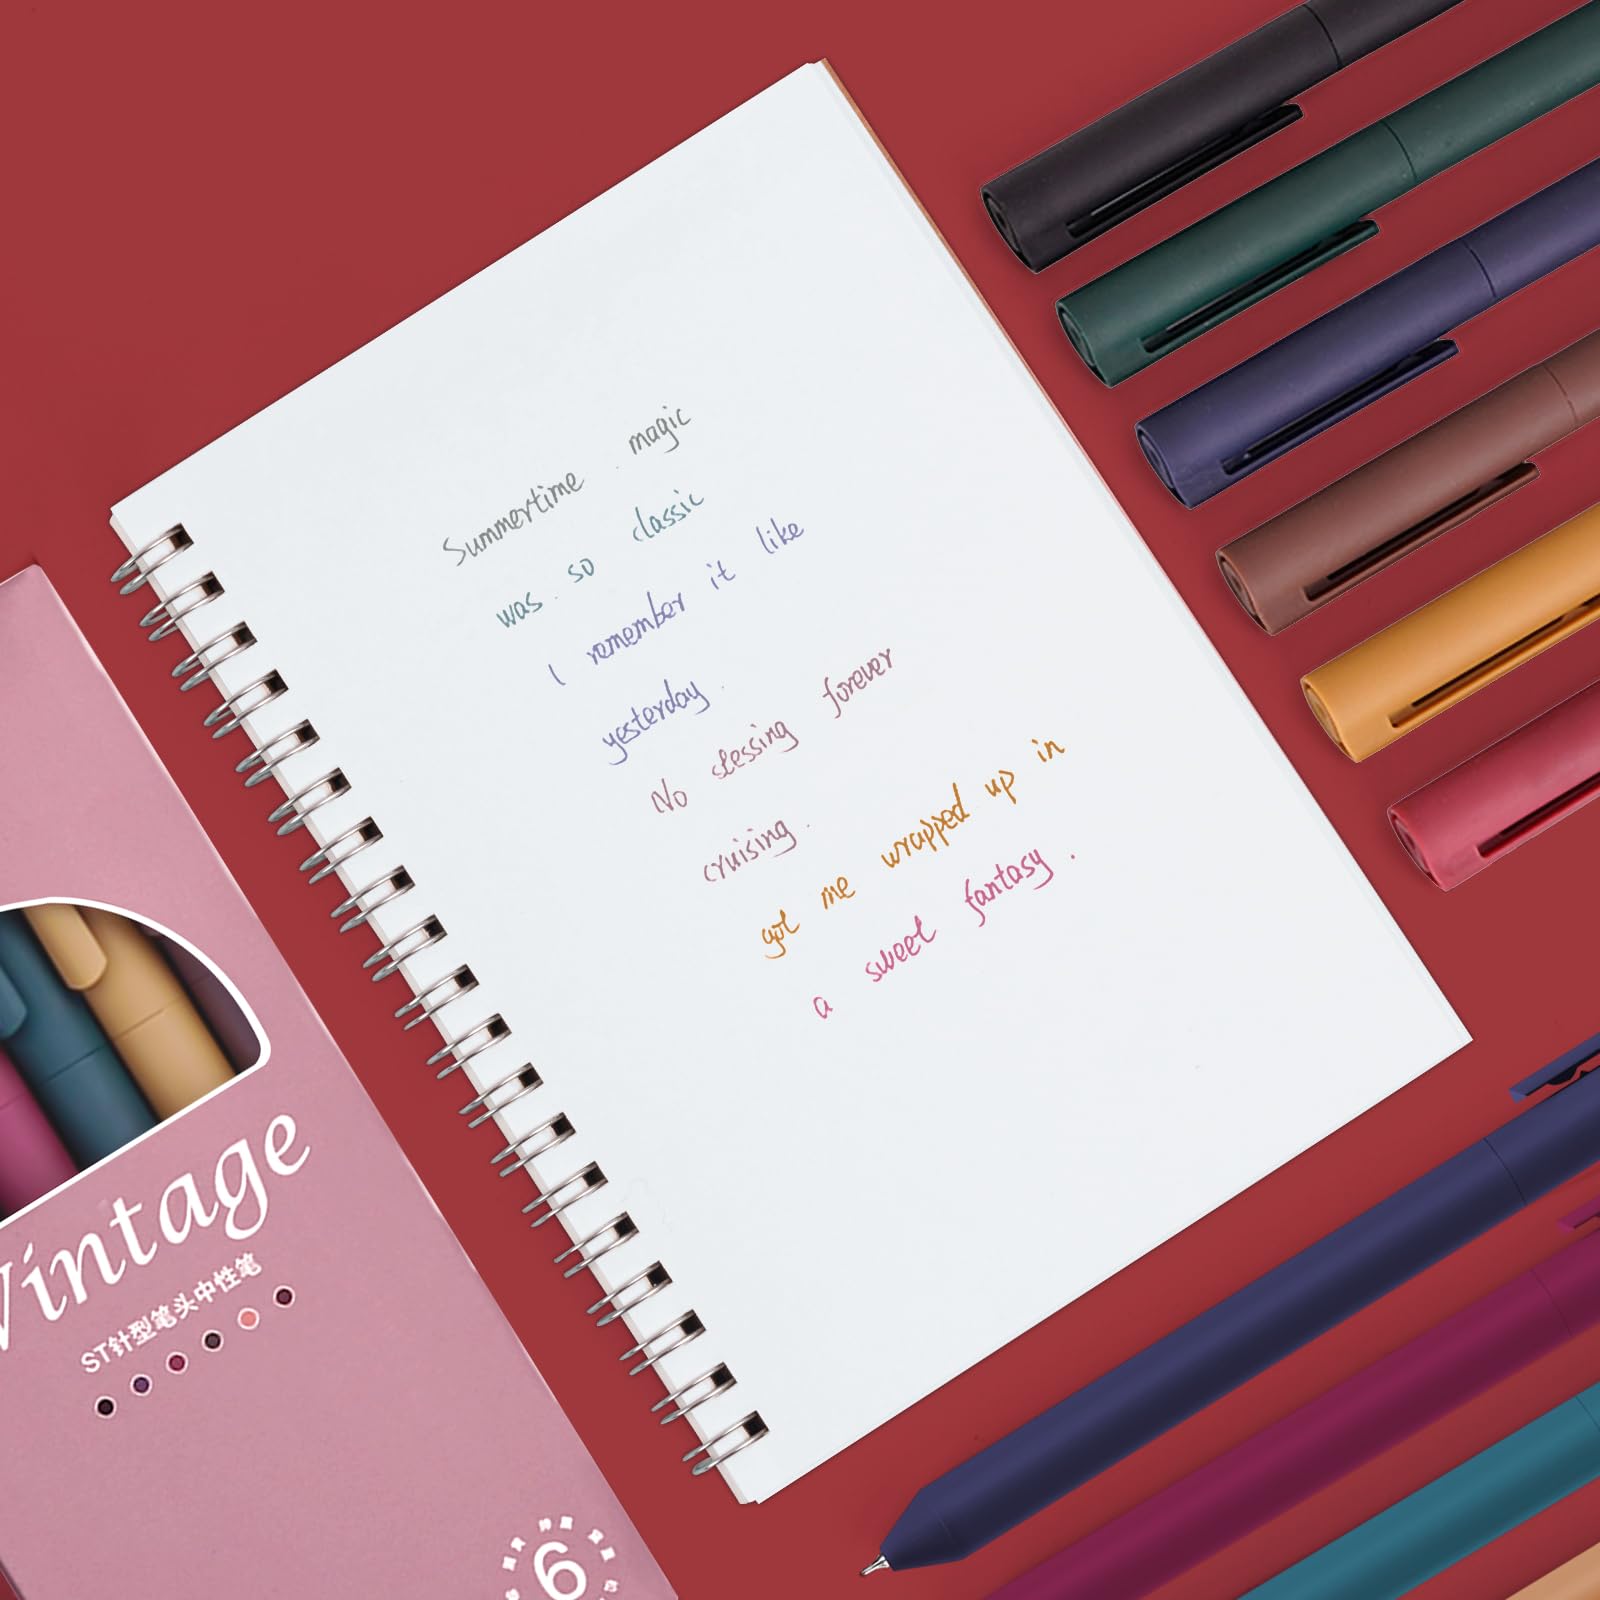 Summertime . magic
was . so classic
I remember it like
yesterday .
No slessing forever
cruising .
got me wrapped up in
a sweet fantasy .
Vintage
ST针型笔头中性笔
6